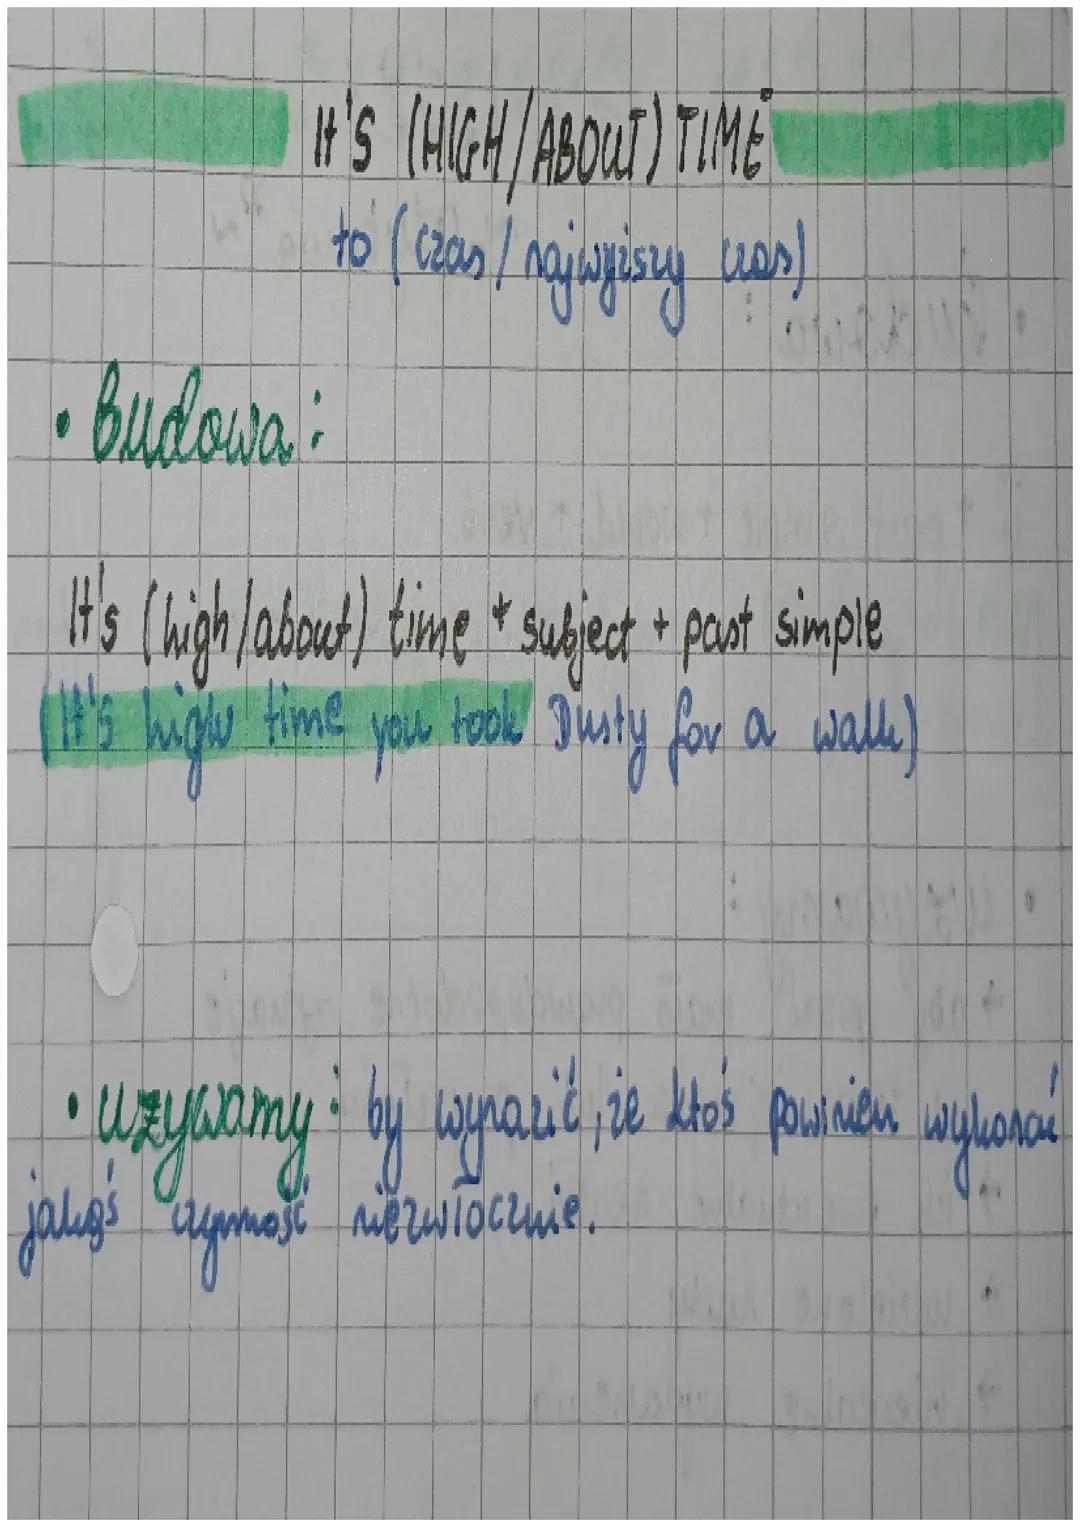 It's (HIGH/ABOUT) TIME
to (czas/najwyższy czas)
• Budowa:
It's (high/about) time + subject + past simple
(It's high time you took Dusty for a walk)
• Używamy: by wyrazić, że ktoś powinien wykonać
jakąś czynność niezwłocznie.